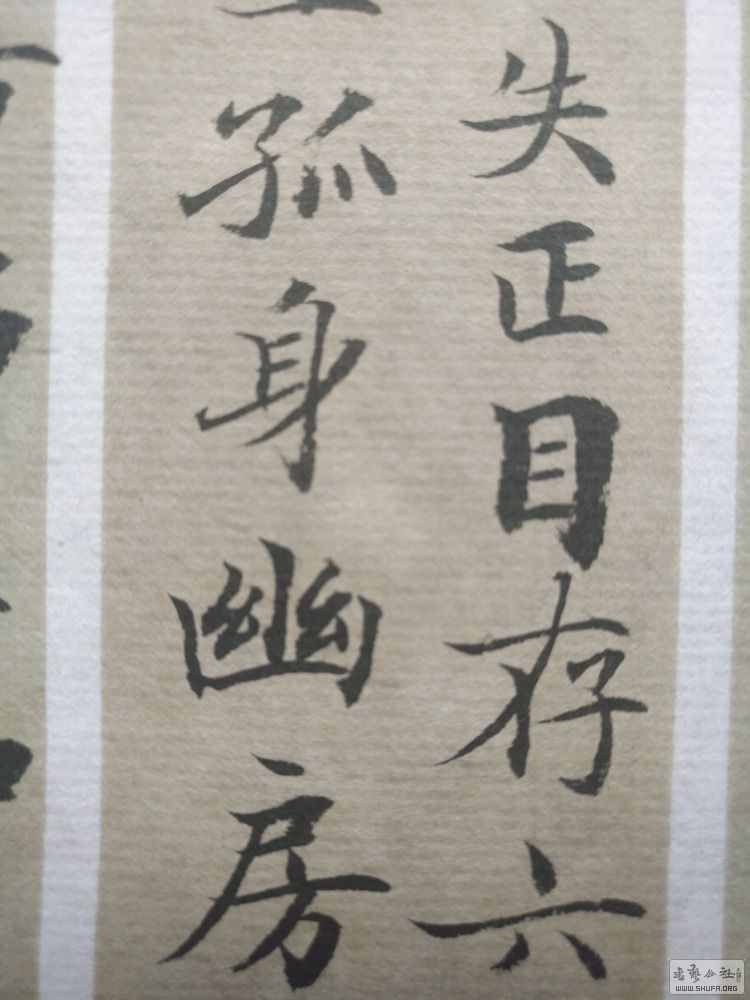 失正目存六
孤身幽房
WWW.SHUFA.ORG